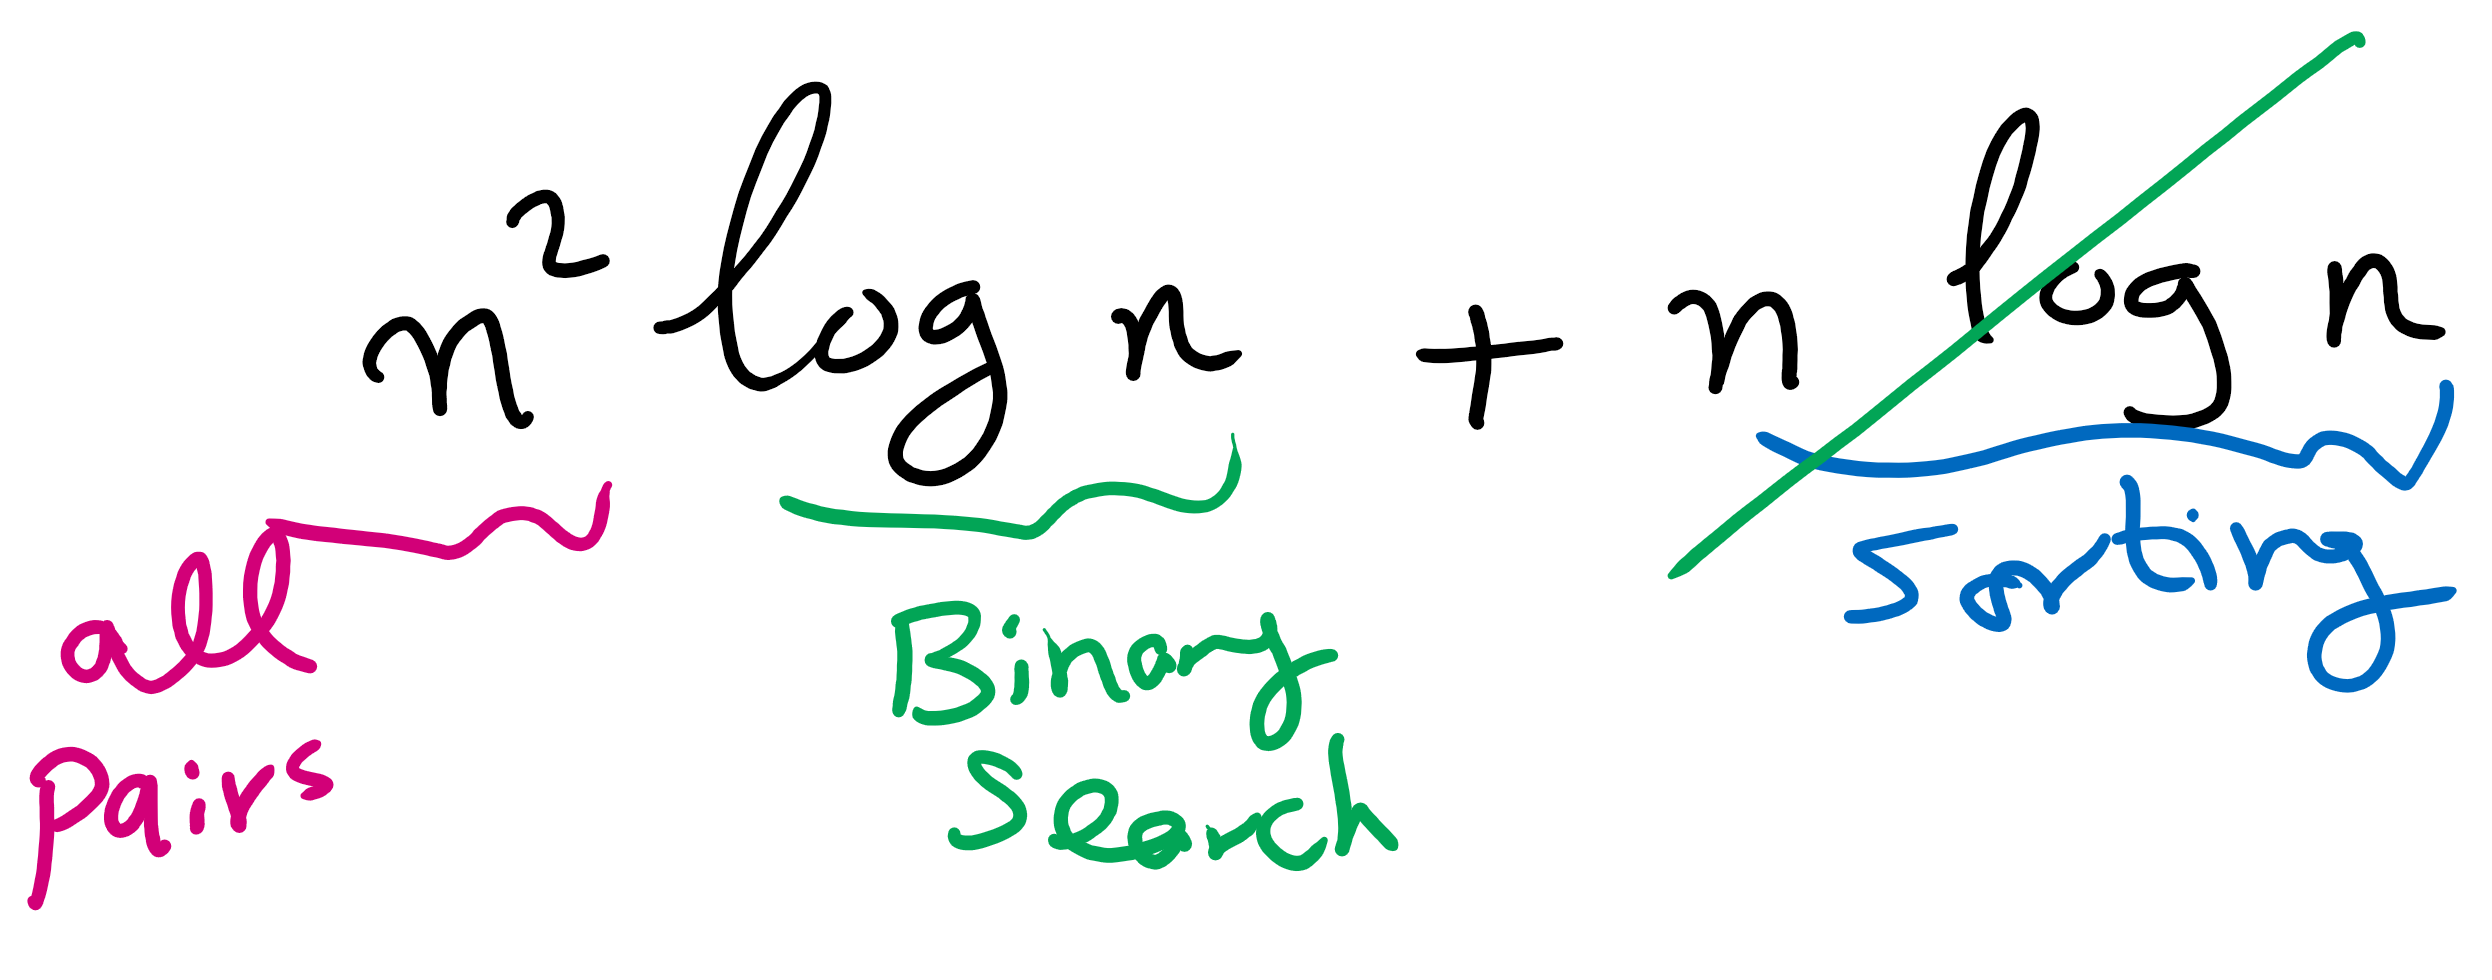 n² log n + n log n
all
pairs
Binary
Search
Sorting